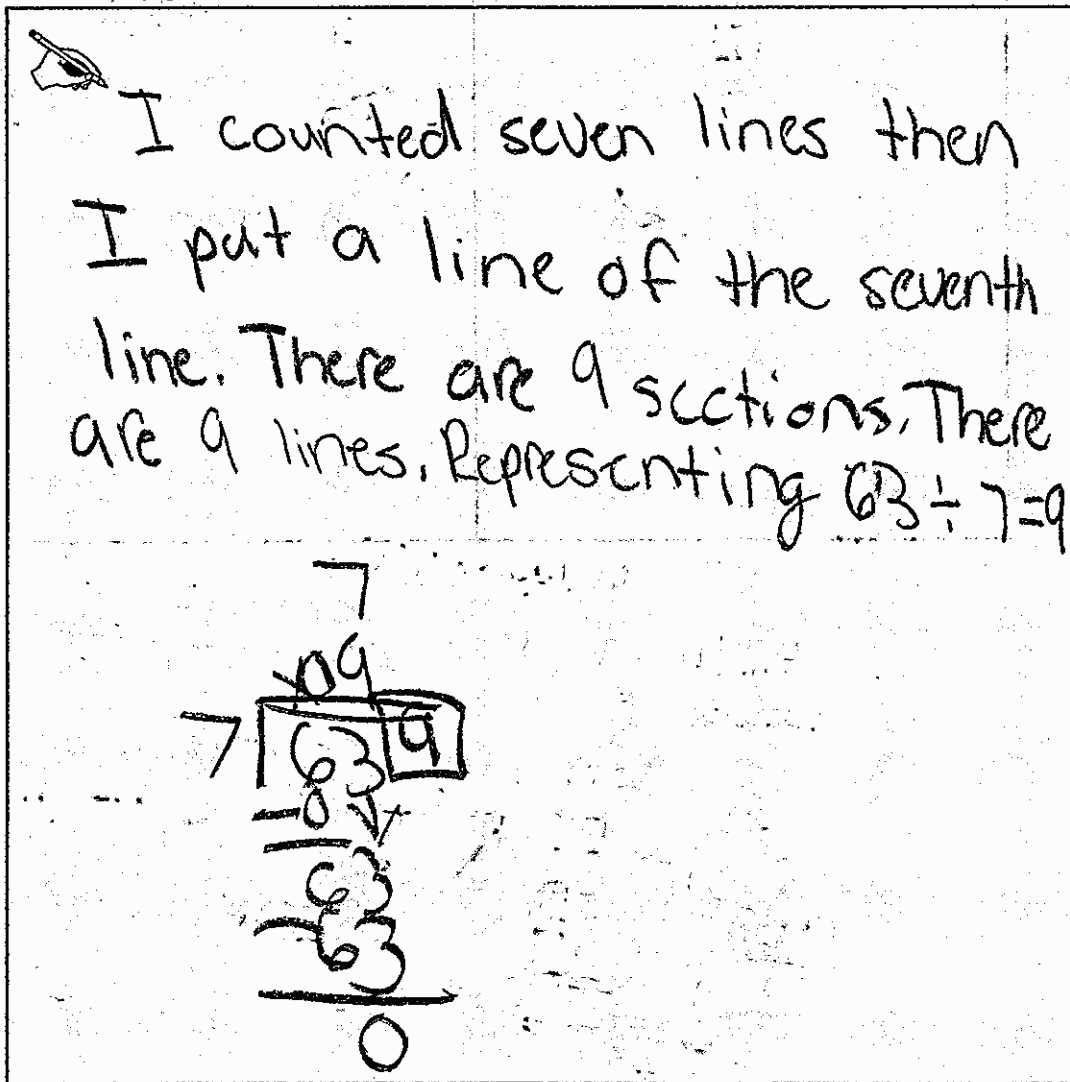 I counted seven lines then
I put a line of the seventh
line. There are 9 sections. There
are 9 lines. Representing 63 ÷ 7=9
7
09
7 63 9
-0
63
-63
0